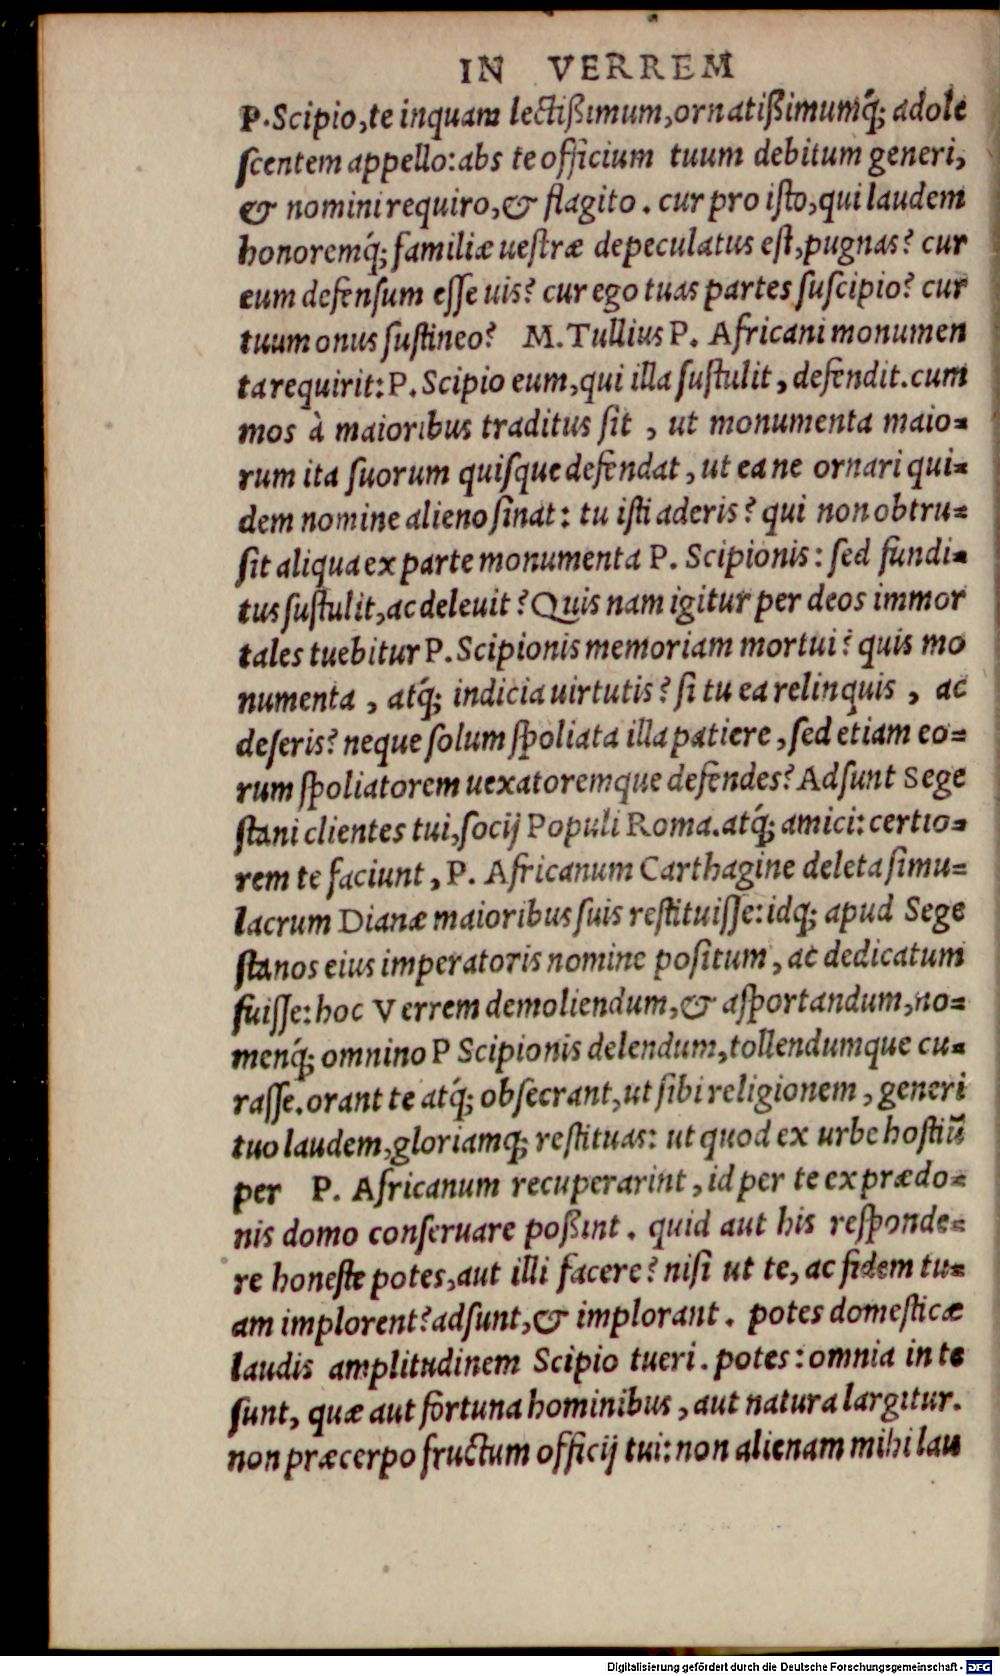 IN VERREM
P. Scipio, te inquam lectißimum, ornatißimumq́; adole
ſcentem appello: abs te officium tuum debitum generi,
& nomini requiro, & flagito. cur pro iſto, qui laudem
honoremq́; familiæ ueſtræ depeculatus eſt, pugnas? cur
eum defenſum eſſe uis? cur ego tuas partes ſuſcipio? cur
tuum onus ſuſtineo? M. Tullius P. Africani monumen
ta requirit: P. Scipio eum, qui illa ſuſtulit, defendit. cum
mos à maioribus traditus ſit, ut monumenta maio-
rum ita ſuorum quiſque defendat, ut ea ne ornari qui-
dem nomine alieno ſinat: tu iſti aderis? qui non obtru-
ſit aliqua ex parte monumenta P. Scipionis: ſed fundi-
tus ſuſtulit, ac deleuit? Quis nam igitur per deos immor
tales tuebitur P. Scipionis memoriam mortui? quis mo
numenta, atq́; indicia uirtutis? ſi tu ea relinquis, ac
deſeris? neque ſolum ſpoliata illa patiere, ſed etiam eo-
rum ſpoliatorem uexatoremque defendes? Adſunt Sege
ſtani clientes tui, ſocij Populi Roma. atq́; amici: certio-
rem te faciunt, P. Africanum Carthagine deleta ſimu-
lacrum Dianæ maioribus ſuis reſtituiſſe: idq; apud Sege
ſtanos eius imperatoris nomine poſitum, ac dedicatum
fuiſſe: hoc Verrem demoliendum, & aſportandum, no-
menq́; omnino P Scipionis delendum, tollendumque cu-
raſſe. orant te atq́; obſecrant, ut ſibi religionem, generi
tuo laudem, gloriamq; reſtituas: ut quod ex urbe hoſtiũ
per P. Africanum recuperarint, id per te ex prædo-
nis domo conſeruare poßint. quid aut his reſponde-
re honeſte potes, aut illi facere? niſi ut te, ac fidem tu-
am implorent? adſunt, & implorant. potes domeſticæ
laudis amplitudinem Scipio tueri. potes: omnia in te
ſunt, quæ aut fortuna hominibus, aut natura largitur.
non præcerpo fructum officij tui: non alienam mihi lau
Digitalisierung gefördert durch die Deutsche Forschungsgemeinschaft - DFG